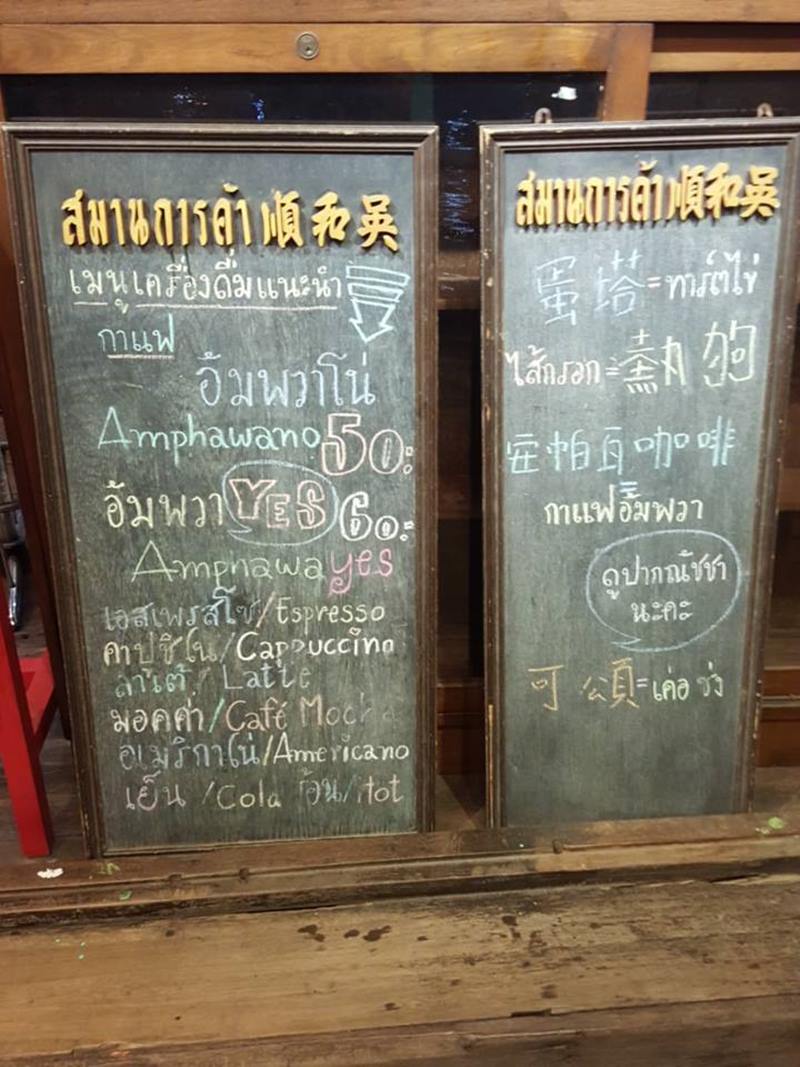 สมานการค้า 順和吳
เมนูเครื่องดื่มแนะนำ
กาแฟ
อัมพวาโน่
Amphawano 50.-
อัมพวา YES 60.-
Amphawa yes
เอสเพรสโซ่/Espresso
คาปูชิโน/Cappuccino
ลาเต้/Latte
มอคค่า/Café Mocha
อเมริกาโน่/Americano
เย็น/Cola ร้อน/Hot
สมานการค้า 順和吳
蛋塔=ทาร์ตไข่
ไส้กรอก=熱狗
安帕瓦咖啡
กาแฟอัมพวา
ดูปากณัชชา
นะคะ
可頌=